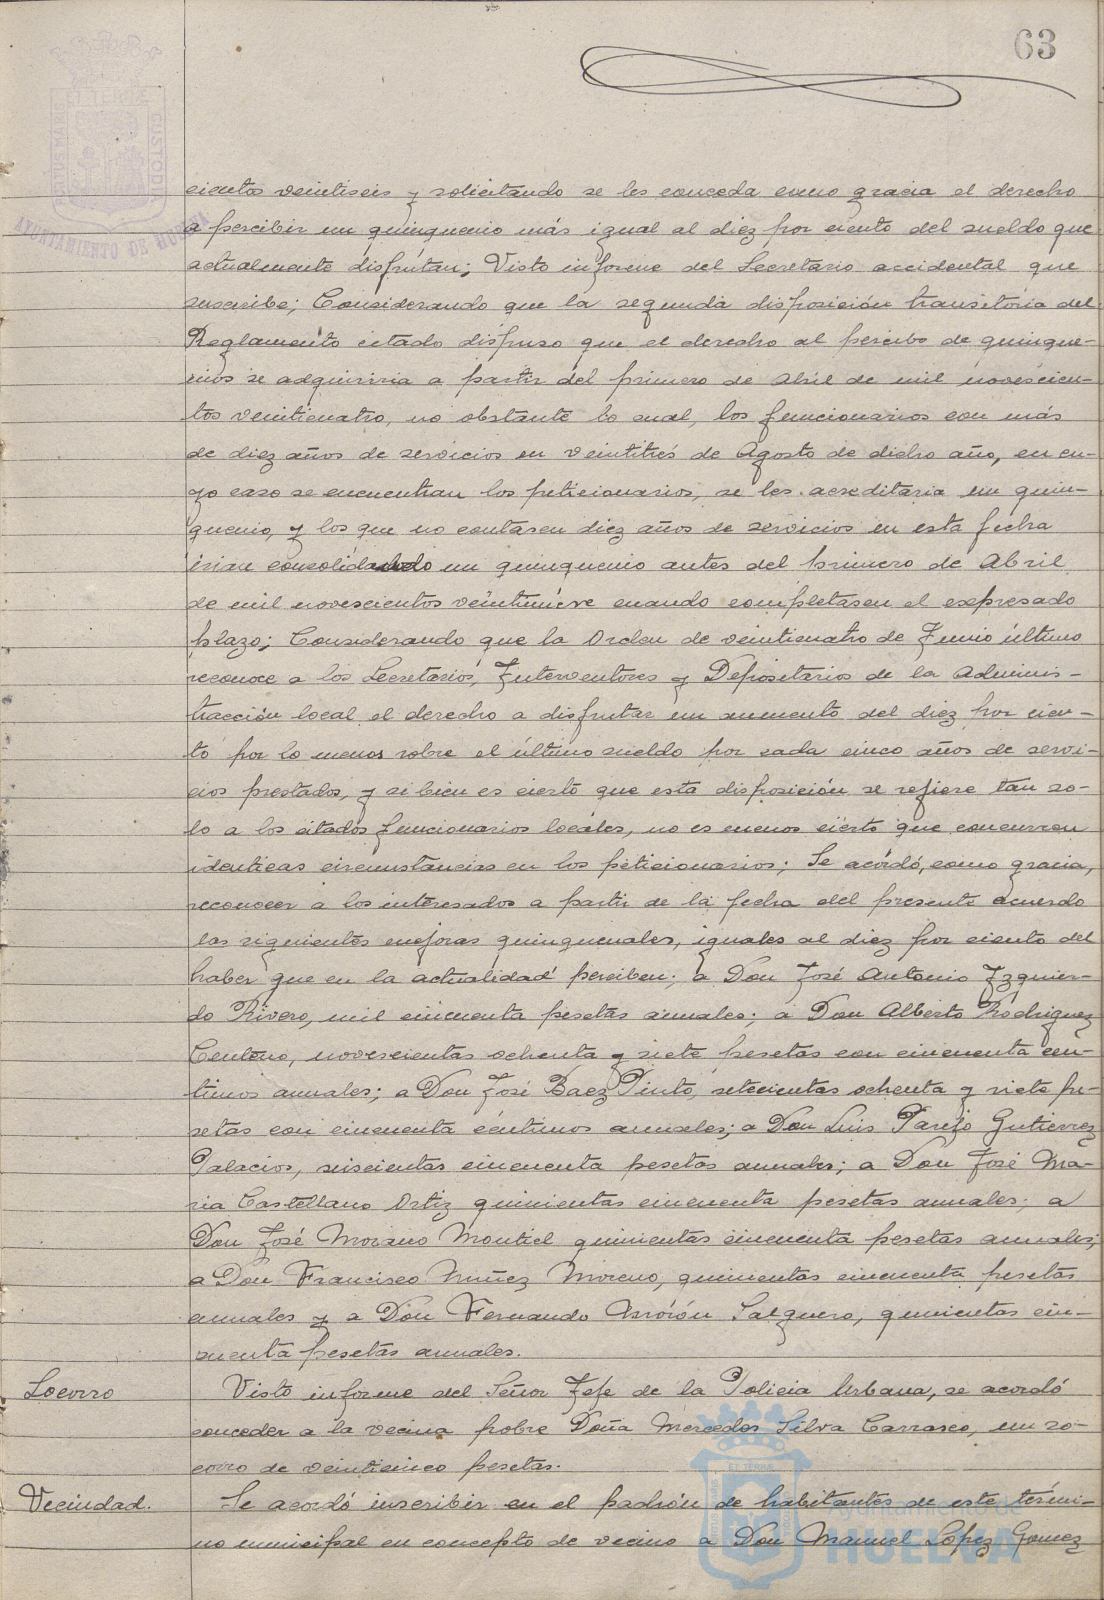 63
PORTUS MARIS ET TERRAE CUSTODIA
AYUNTAMIENTO DE HUELVA
cientos veintiseis y solicitando se les conceda como gracia el derecho
a percibir un quinquenio más igual al diez por ciento del sueldo que
actualmente disfrutan; Visto informe del Secretario accidental que
suscribe; Considerando que la segunda disposición transitoria del
Reglamento citado dispuso que el derecho al percibo de quinque-
nios se adquiriria a partir del primero de Abril de mil novescien-
tos veinticuatro, no obstante lo cual, los funcionarios con más
de diez años de servicios en veintitrés de Agosto de dicho año, en cu-
yo caso se encuentran los peticionarios, se les acreditaria un quin-
quenio, y los que no contasen diez años de servicios en esta fecha
irian consolidando un quinquenio antes del primero de Abril
de mil novescientos veintinueve cuando completasen el expresado
plazo; Considerando que la Orden de veinticuatro de Junio último
reconoce a los Secretarios, Interventores y Depositarios de la Adminis-
tracción local el derecho a disfrutar un aumento del diez por cien-
to por lo menos sobre el último sueldo por cada cinco años de servi-
cios prestados, y si bien es cierto que esta disposición se refiere tan so-
lo a los citados funcionarios locales, no es menos cierto que concurren
identicas circunstancias en los peticionarios; Se acordó, como gracia,
reconocer a los interesados a partir de la fecha del presente acuerdo
las siguientes mejoras quinquenales, iguales al diez por ciento del
haber que en la actualidad perciben; a Don José Antonio Izquier-
do Rivero, mil cincuenta pesetas anuales; a Don Alberto Rodriguez
Centeno, novescientas ochenta y siete pesetas con cincuenta cen-
timos anuales; a Don José Baez Pinto, setecientas ochenta y siete pe-
setas con cincuenta céntimos anuales; a Don Luis Parejo Gutierrez
Palacios, seiscientas cincuenta pesetas anuales; a Don José Ma-
ria Castellano Ortiz quinientas cincuenta pesetas anuales; a
Don José Moriano Montiel quinientas cincuenta pesetas anuales;
a Don Francisco Nuñez Moreno, quinientas cincuenta pesetas
anuales y a Don Fernando Morón Salguero, quinientas cin-
cuenta pesetas anuales.
Socorro
Visto informe del Señor Jefe de la Policia Urbana, se acordó
conceder a la vecina pobre Doña Mercedes Silva Carrasco, un so-
corro de veinticinco pesetas.
Vecindad.
Se acordó inscribir en el padrón de habitantes de este térmi-
no municipal en concepto de vecino a Don Manuel López Gomez
Ayuntamiento de
HUELVA